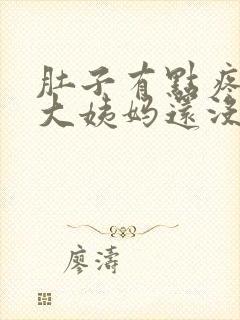 肚子有點疼
大姨妈還没
廖濤